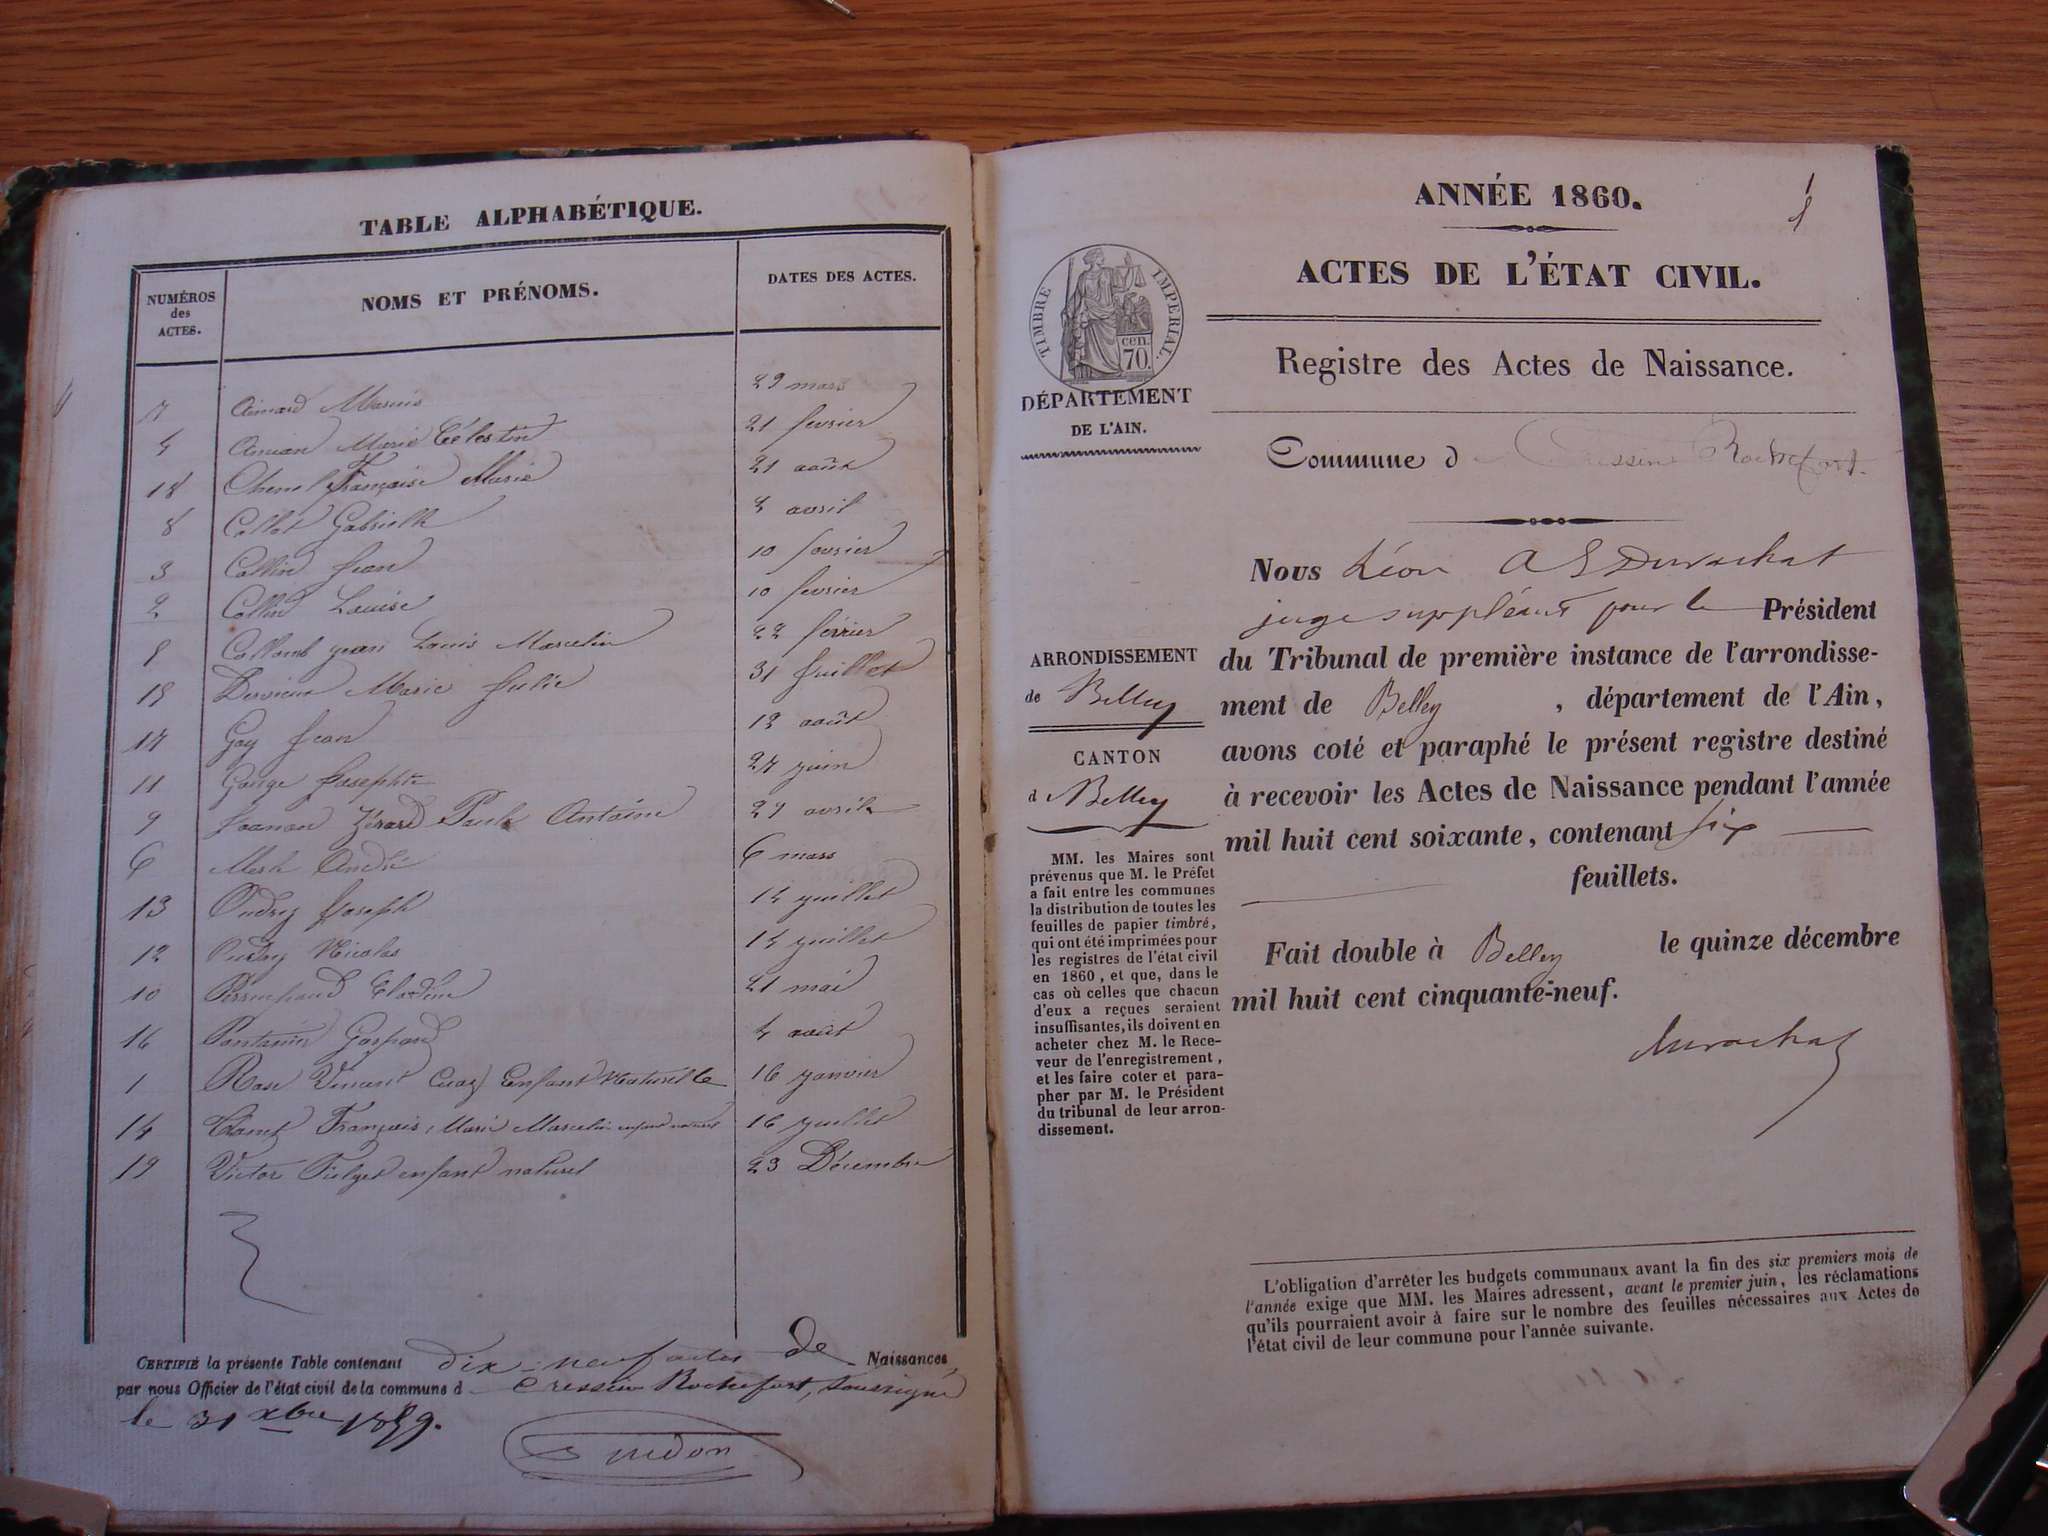 TABLE ALPHABÉTIQUE.
NUMÉROS
des
ACTES.
NOMS ET PRÉNOMS.
DATES DES ACTES.
7 Aimard Marius 29 mars
4 Marie Célestin 21 fevrier
18 Françoise Marie 21 août
8 Collot Gabrielle 2 avril
3 Collin Jean 10 fevrier
2 Collin Louise 10 fevrier
5 Collomb jean Louis Marcelin 22 février
15 Dervieux Marie Julie 31 Juillet
17 Goy Jean 12 août
11 Gouge Josephte 27 juin
9 Joanan Paule Antoine 27 avril
6 André 6 mars
13 Oudry Joseph 14 juillet
12 Oudry Nicolas 14 juillet
10 Claudine 21 mai
16 Pantanier Gaspard 4 août
1 Rose Vincent Enfant Naturelle 16 janvier
14 Français, Marie Marcelin enfant naturel 16 juillet
19 Victor enfant naturel 23 Décembre
CERTIFIÉ la présente Table contenant dix-neuf actes de Naissances
par nous Officier de l'état civil de la commune d Cressin Rochefort, soussigné
le 31 xbre 1859.
ANNÉE 1860.
1
ACTES DE L'ÉTAT CIVIL.
TIMBRE IMPERIAL.
cen.
70.
Registre des Actes de Naissance.
DÉPARTEMENT
DE L'AIN.
Commune d Cressin Rochefort.
Nous Léon Durochat
juge suppléant pour le Président
du Tribunal de première instance de l'arrondisse-
ment de Belley , département de l'Ain,
avons coté et paraphé le présent registre destiné
à recevoir les Actes de Naissance pendant l'année
mil huit cent soixante, contenant six
feuillets.
Fait double à Belley le quinze décembre
mil huit cent cinquante-neuf.
Durochat
ARRONDISSEMENT
de Belley
CANTON
d Belley
MM. les Maires sont
prévenus que M. le Préfet
a fait entre les communes
la distribution de toutes les
feuilles de papier timbré,
qui ont été imprimées pour
les registres de l'état civil
en 1860, et que, dans le
cas où celles que chacun
d'eux a reçues seraient
insuffisantes, ils doivent en
acheter chez M. le Rece-
veur de l'enregistrement,
et les faire coter et para-
pher par M. le Président
du tribunal de leur arron-
dissement.
L'obligation d'arrêter les budgets communaux avant la fin des six premiers mois de
l'année exige que MM. les Maires adressent, avant le premier juin, les réclamations
qu'ils pourraient avoir à faire sur le nombre des feuilles nécessaires aux Actes de
l'état civil de leur commune pour l'année suivante.